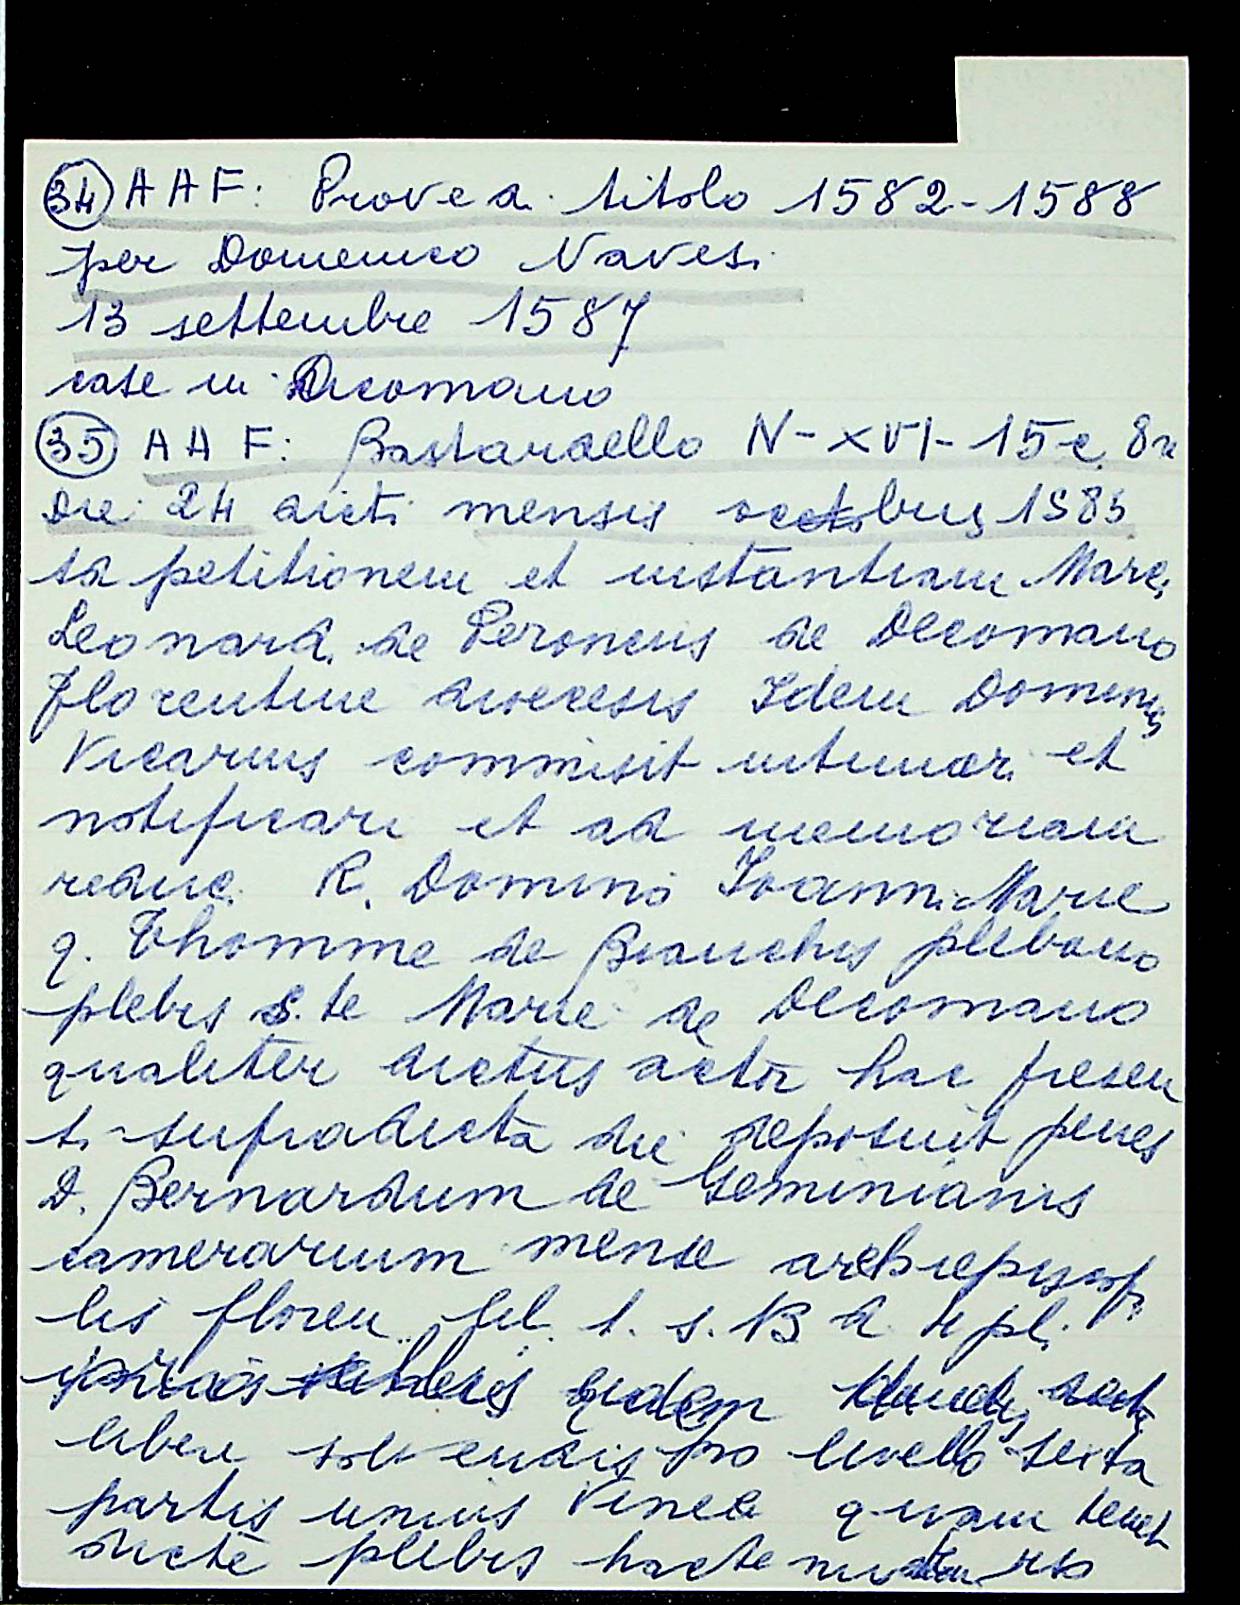 34 AAF: Prove a titolo 1582-1588
per Domenico Navesi
13 settembre 1587
case in Dicomano
35 AAF: Bastardello N-XVI-15 c. 8r
Die 24 dicti mensis octobris 1585
Ad petitionem et instantiam Marci
Leonardi de Peroneis de Decomano
florentine diocesis Idem Dominus
Vicarius commisit intimari et
notificari et ad memoriam
reduci R. Domino Joanni Marie
q. Thomme de Bianchis plebano
plebis S.te Marie de Decomano
qualiter dictus actor hac presen
ti supradicta die deposuit penes
D. Bernardum de Geminianis
camerarium mense archiepiscopa
lis floren. fl. 1. s. 13 d. 4 pl.
quidem
liben solvendis pro livello sexta
partis unius vinee quam tenet
dicte plebis hacte